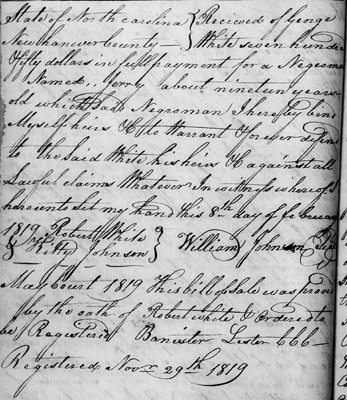 State of North carolina } Recieved of George
Newhanover County — } White seven hundre
fifty dollars in full payment for a Negroman
Named ,, Jerry about nineteen years
old which said Negroman I hereby bind
Myself heirs &c to Warrant & forever defend
to the said White his heirs & against all
Lawful claims Whatever In witness whereof I
hereunto set my hand this 8th day of february
1819 Robert White } William Johnson
} Kitty Johnson }
May court 1819 This bill of sale was proved
by the oath of Robert White & Ordered to
be Registered Banister Lester
Registered Novr 29th 1819